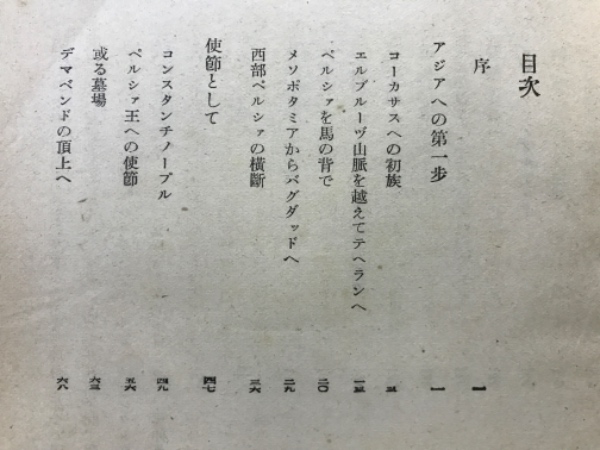 目次
序 一
アジアへの第一步 一
コーカサスへの初旅 三
エルブルーヅ山脈を越えてテヘランへ 一三
ペルシァを馬の背で 二〇
メソポタミアからバグダッドへ 二九
西部ペルシァの橫斷 三六
使節として 四七
コンスタンチノープル 四九
ペルシァ王への使節 五六
或る墓場 六三
デマベンドの頂上へ 六八